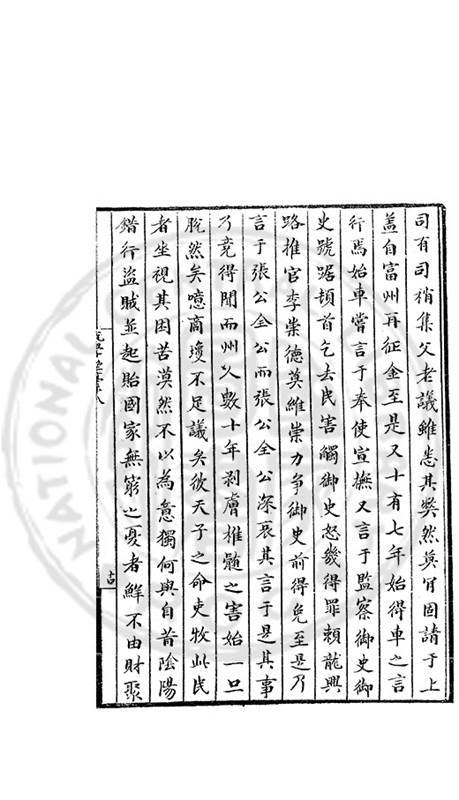 司有司稍集父老議雖悉其獘然莫肯固請于上
盖自富州再征金至是又十有七年始得車之言
行焉始車嘗言于奉使宣撫又言于監察御史御
史號踞頓首乞去民害觸御史怒幾得罪賴龍興
路推官李崇德莫維崇力争御史前得免至是乃
言于張公全公而張公全公深哀其言于是其事
乃竟得聞而州父數十年剥膚椎髓之害始一旦
脱然矣噫商瓊不足議矣彼天子之命吏牧此民
者坐視其困苦漠然不以為意獨何與自昔陰陽
錯行盜賊並起貽國家無窮之憂者鮮不由財聚
十八
古
NATIONAL